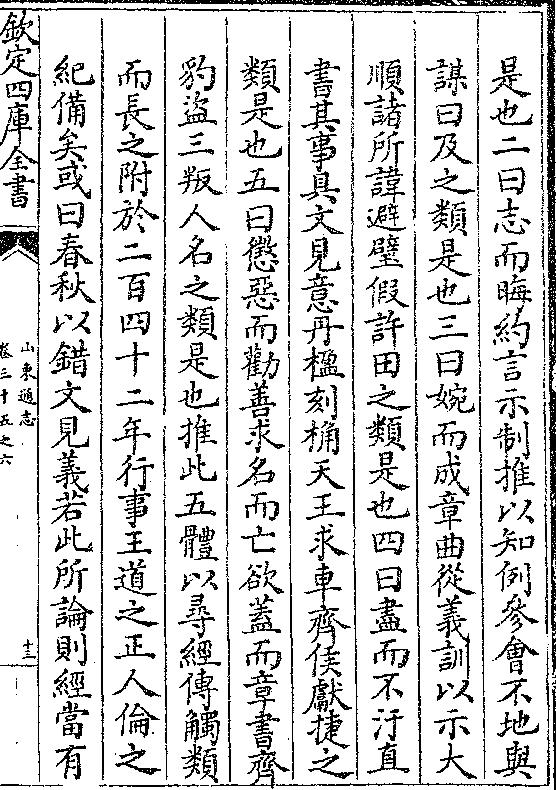 是也二曰志而晦約言示制推以知例參會不地與
謀曰及之類是也三曰婉而成章曲從義訓以示大
順諸所諱避璧假許田之類是也四曰盡而不汙直
書其事具文見意丹楹刻桷天王求車齊侯獻捷之
類是也五曰懲惡而勸善求名而亡欲蓋而章書齊
豹盜三叛人名之類是也推此五體以尋經傳觸類
而長之附於二百四十二年行事王道之正人倫之
紀備矣或曰春秋以錯文見義若此所論則經當有
欽定四庫全書
山東通志
卷三十五之六
十三